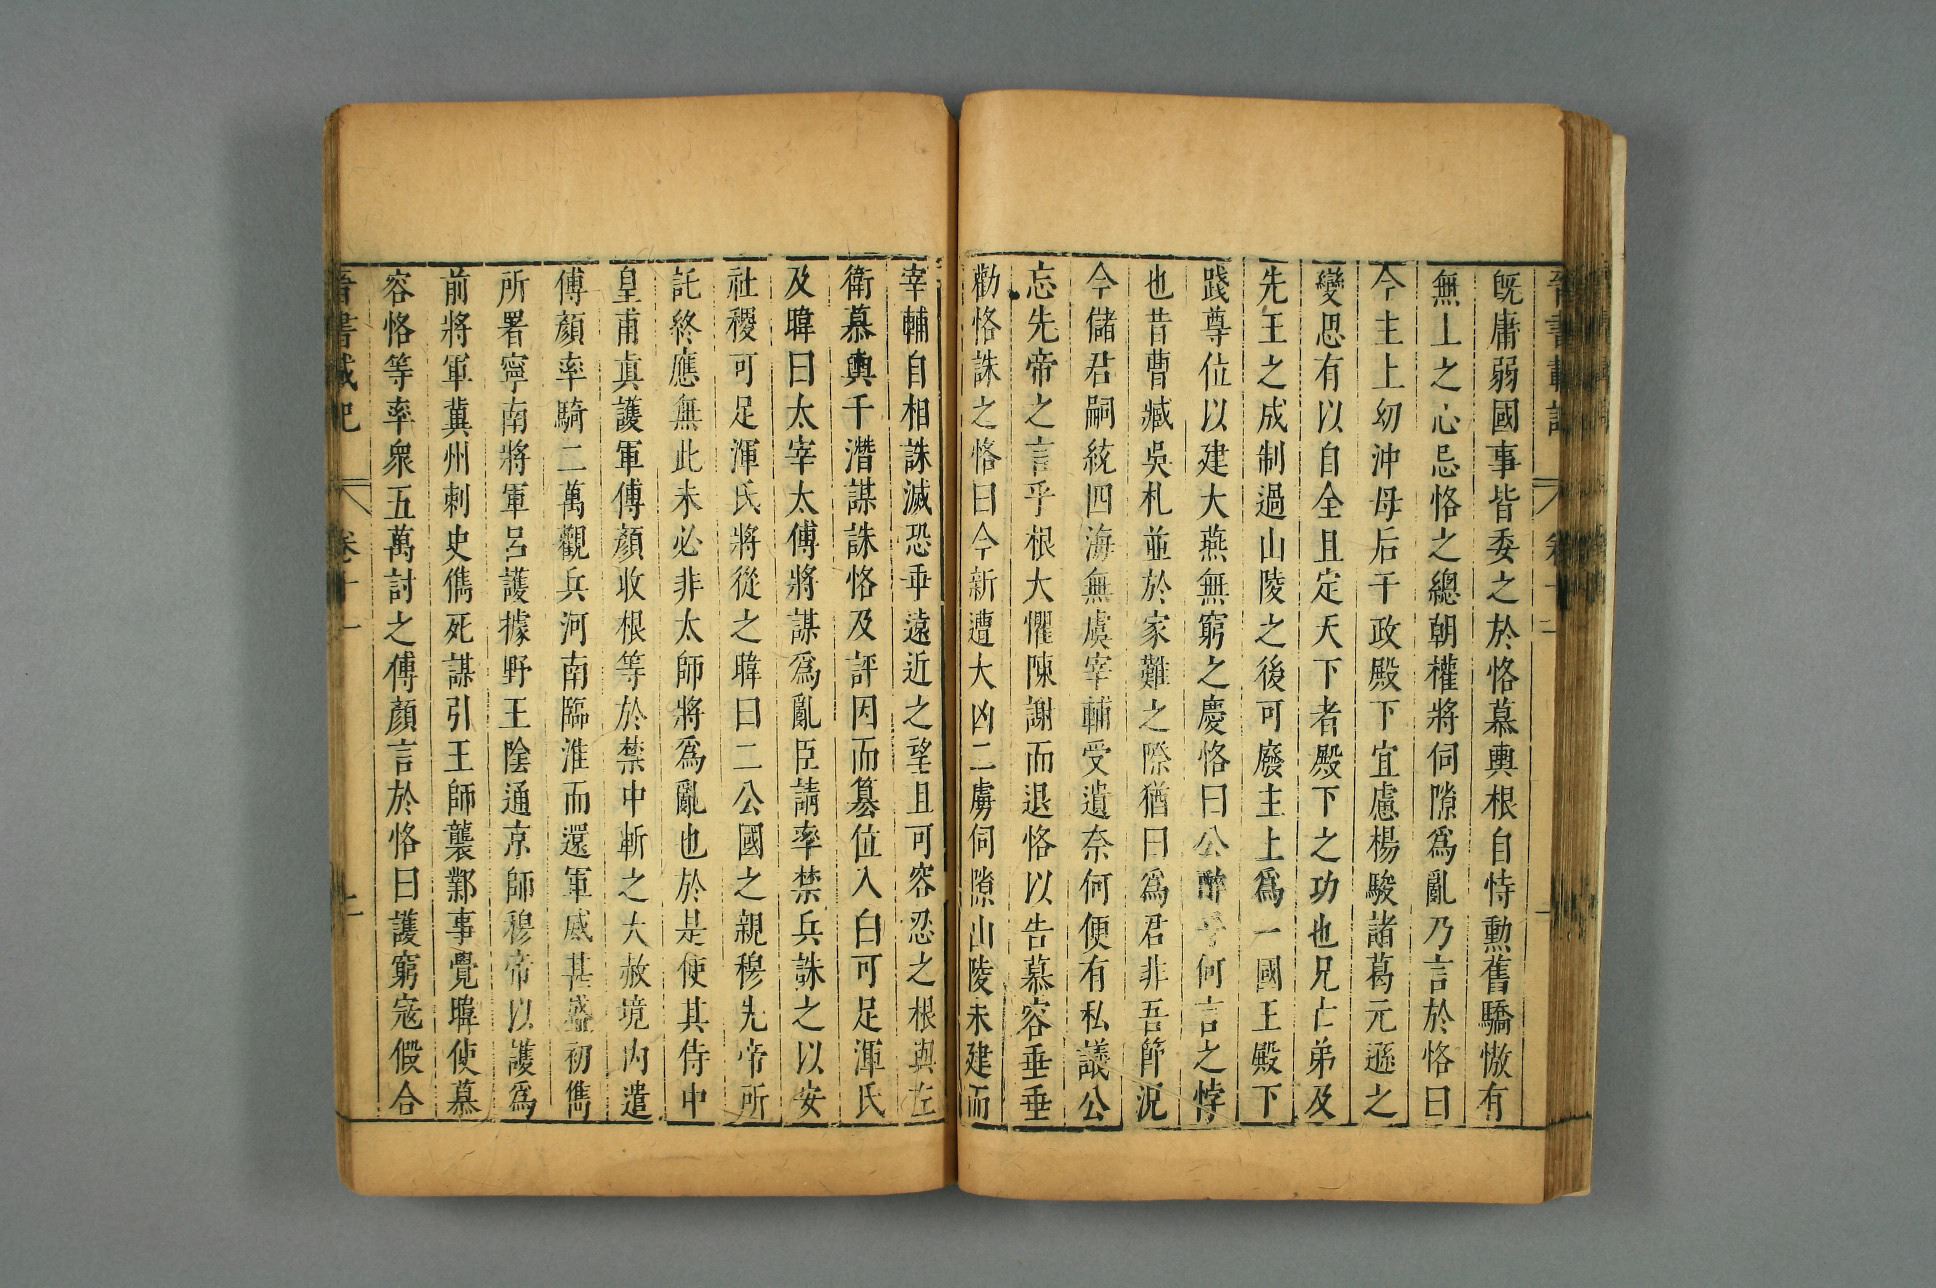 既庸弱國事皆委之於恪慕輿根自恃勳舊驕慠有
無上之心忌恪之總朝權將伺隙爲亂乃言於恪曰
今主上幼沖母后干政殿下宜慮楊駿諸葛元遜之
變思有以自全且定天下者殿下之功也兄亡弟及
先王之成制過山陵之後可廢主上爲一國王殿下
踐尊位以建大燕無窮之慶恪曰公醉乎何言之悖
也昔曹臧吳札並於家難之際猶曰爲君非吾節況
今儲君嗣統四海無虞宰輔受遺奈何便有私議公
忘先帝之言乎根大懼陳謝而退恪以告慕容垂垂
勸恪誅之恪曰今新遭大凶二虜伺隙山陵未建而
宰輔自相誅滅恐乖遠近之望且可容忍之根與左
衛慕輿千潛謀誅恪及評因而篡位入白可足渾氏
及暐曰太宰太傅將謀爲亂臣請率禁兵誅之以安
社稷可足渾氏將從之暐曰二公國之親穆先帝所
託終應無此未必非太師將爲亂也於是使其侍中
皇甫真護軍傅顏收根等於禁中斬之大赦境內遣
傅顏率騎二萬觀兵河南臨淮而還軍威甚盛初儁
所署寧南將軍呂護據野王陰通京師穆帝以護爲
前將軍冀州刺史儁死謀引王師襲鄴事覺暐使慕
容恪等率衆五萬討之傅顏言於恪曰護窮寇假合
晉書載記 卷十一 二